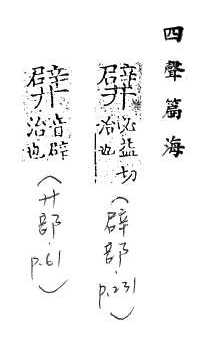 四聲篇海
必益切
治也
(辟部.p.231)
音辟
治也
(廾部.p.61)